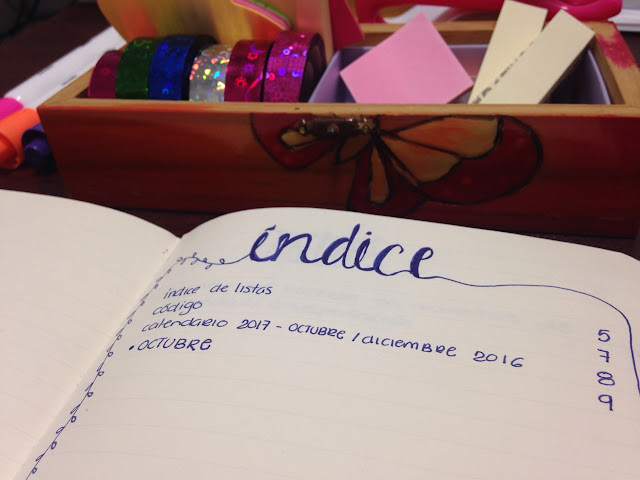 índice
índice de listas 5
código 7
calendário 2017 - OCTUBRE / diciembre 2016 8
• OCTUBRE 9